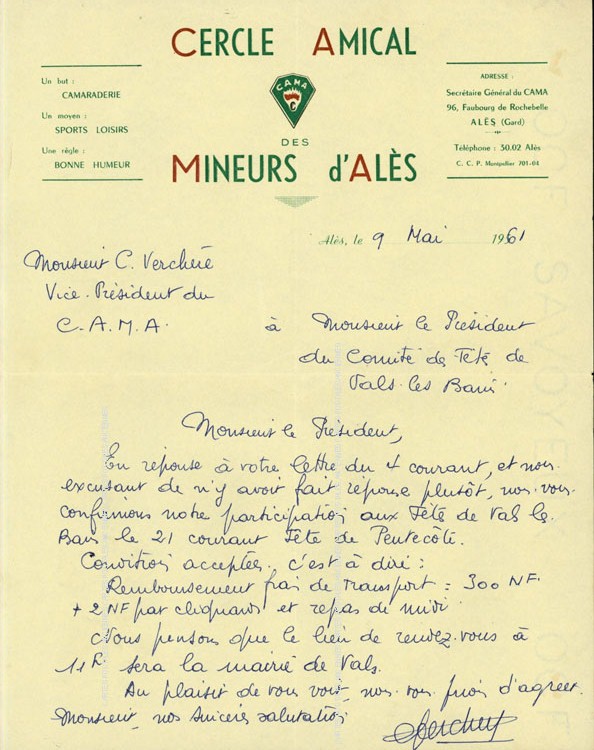 CERCLE AMICAL
CAMA
C
DES
MINEURS d'ALÈS
Un but :
CAMARADERIE
Un moyen :
SPORTS LOISIRS
Une règle :
BONNE HUMEUR
ADRESSE :
Secrétaire Général du CAMA
96, Faubourg de Rochebelle
ALÈS (Gard)
Téléphone : 30.02 Alès
C. C. P. Montpellier 701-04
Alès, le 9 Mai 1961
Monsieur C. Verchère
Vice-Président du
C.A.M.A.
à Monsieur le Président
du Comité des Fêté de
Vals-les Bains
Monsieur le Président,
En réponse à votre lettre du 4 courant, et nous
excusant de n'y avoir fait réponse plutôt, nous vous
confirmons notre participation aux Fêté de Vals les
Bains le 21 courant Fête de Pentecôte.
Conditions acceptées. c'est à dire :
Remboursement frais de Transport = 300 NF.
+ 2 NF par cliquards et repas de midi.
Nous pensons que le lieu de rendez-vous à
11R sera la mairie de Vals.
Au plaisir de vous voir, nous vous prions d'agréer
Monsieur, nos sincères salutations